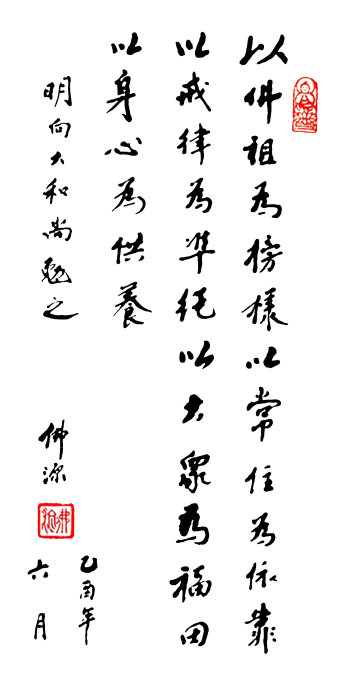 以佛祖為榜樣以常住為依靠
以戒律為準繩以大眾為福田
以身心為供養
明向大和尚勉之
佛源
乙酉年
六月